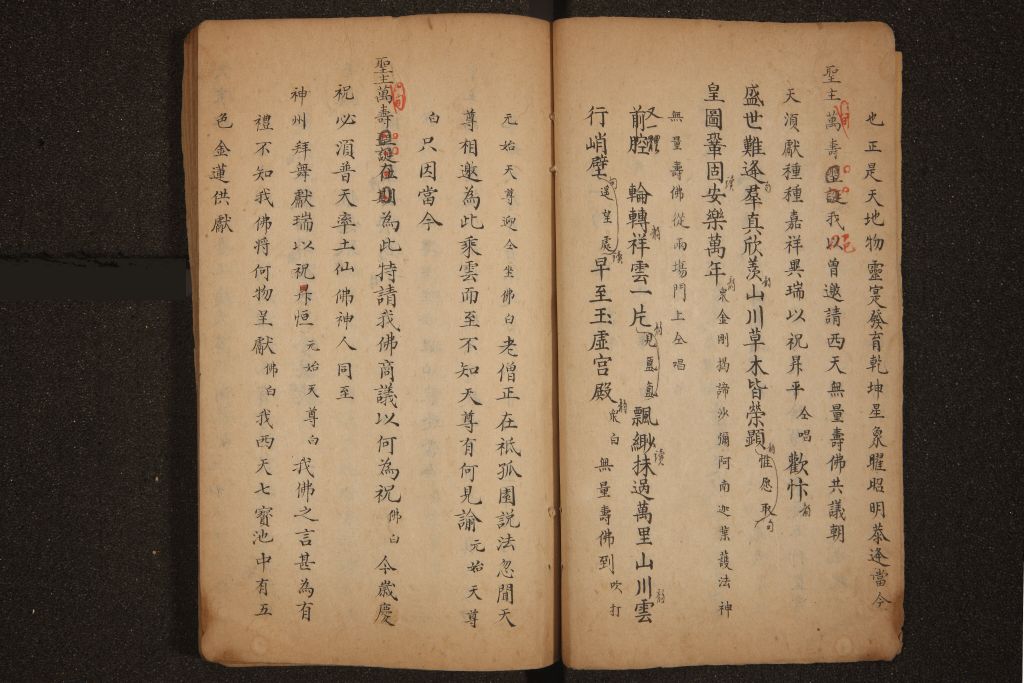 也正是天地物靈寔發育乾坤星象曜昭明恭逢當今
聖主萬壽聖誕我以曾邀請西天無量壽佛共議朝
天湏獻種種嘉祥異瑞以祝昇平仝唱歡忭韵
盛世難逢句羣真欣羨韵山川草木皆榮顯韵惟愿取句
皇圖鞏固讀安樂萬年韵衆金剛揭諦沙彌阿南迦葉護法神
無量壽佛從兩塲門上仝唱
前腔又一體輪轉韵祥雲一片韵見氳氳飄緲讀抹過萬里山川雲韵
行峭壁句遥望處讀早至玉虛宫殿韵衆白無量壽佛到吹打
元始天尊迎仝坐佛白老僧正在祗孤園説法忽聞天
尊相邀為此乘雲而至不知天尊有何見諭元始天尊
白只因當今
聖主萬壽聖誕在期為此特請我佛商議以何為祝佛白今歲慶
祝必湏普天率土仙佛神人同至
神州拜舞獻瑞以祝昇恒元始天尊白我佛之言甚為有
禮不知我佛將何物呈獻佛白我西天七寳池中有五
色金蓮供獻